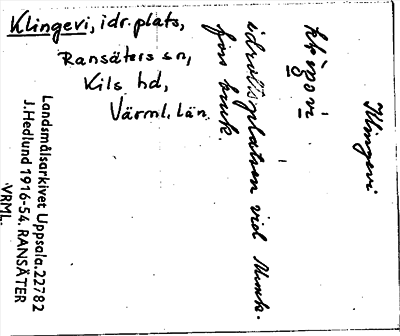 Klingevi, idr.plats,
Ransäters sn,
Kils hd,
Värml. län.
Klingevi
idrottsplatsen vid Munk-
fors bruk.
Landsmålsarkivet Uppsala. 22782
J. Hedlund 1916-54. RANSÄTER
VRML.